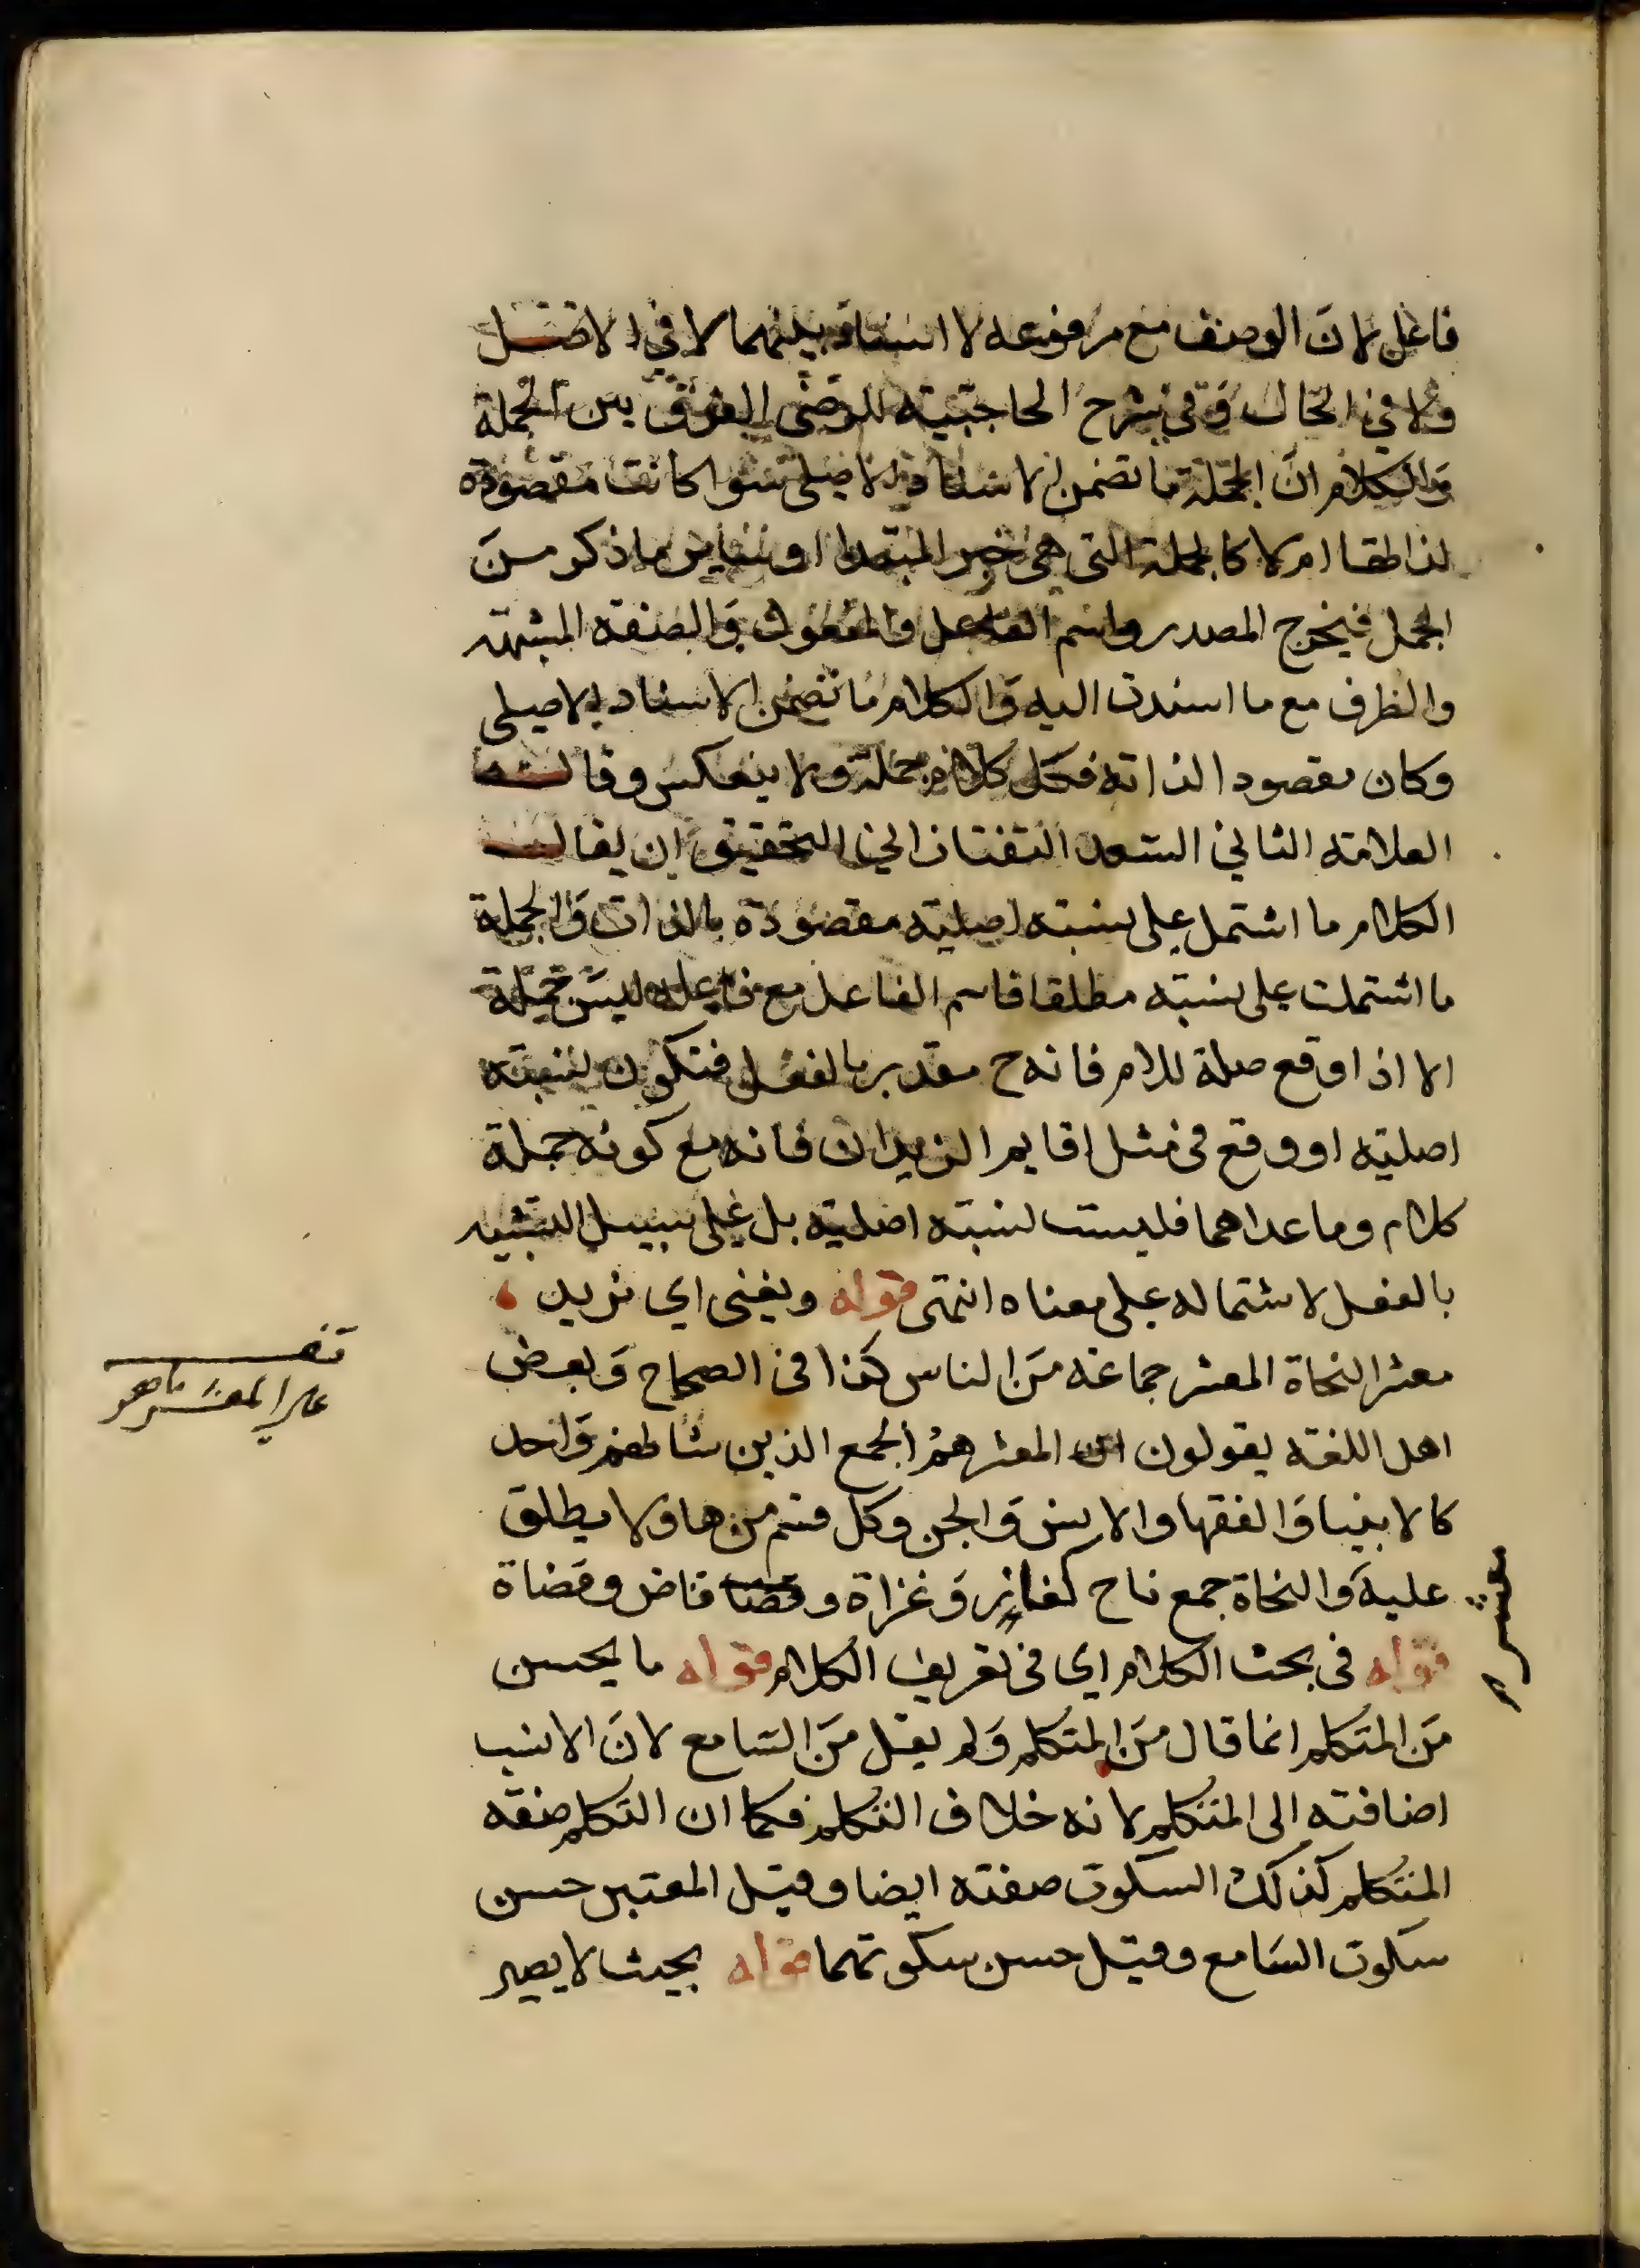 فاعل لان الوصف مع مرفوعه لا اسناد بينهما لا في الاصل
ولا في الحال وفي شرح الحاجبية للرضى الفرق بين الجملة
والكلام ان الجملة ما تضمن الاسناد الاصلى سوا كانت مقصودة
لذاتها ام لا كالجملة التى هى خبر المبتدا او سائر ما ذكر من
الجمل فيخرج المصدر واسم الفاعل والمفعول والصفة المشبهة
والظرف مع ما اسندت اليه والكلام ما تضمن الاسناد الاصلى
وكان مقصودا لذاته فكل كلام جملة ولا ينعكس وقال
العلامة الثاني السعد التفتازاني التحقيق ان يقال
الكلام ما اشتمل على نسبة اصلية مقصودة بالذات والجملة
ما اشتملت على نسبة مطلقا فاسم الفاعل مع فاعله ليس جملة
الا اذا وقع صلة للام فانه ح مقدر بالفعل فتكون نسبته
اصلية او وقع فى مثل اقايم الزيدان فانه مع كونه جملة
كلام وما عداهما فليست نسبته اصلية بل على سبيل التشبيه
بالفعل لاشتماله على معناه انتهى قوله ويغنى اي نريد
معشر النحاة المعشر جماعة من الناس كذا في الصحاح وبعض
اهل اللغة يقولون ان المعشر هم الجمع الذين شانهم واحد
كالانبيا والفقها والانس والجن وكل قسم من ها ولا يطلق
عليه والنحاة جمع ناح كغاز وغزاة وقضا قاض وقضاة
قوله فى بحث الكلام اي فى تعريف الكلام قوله ما يحسن
من المتكلم انما قال من المتكلم ولم يقل من السامع لان الانسب
اضافته الى المتكلم لانه خلاف التكلم فكما ان التكلم صفة
المتكلم كذلك السكوت صفته ايضا وقيل المعتبر حسن
سكوت السامع وقيل حسن سكوتهما قوله بحيث لا يصير
معشر